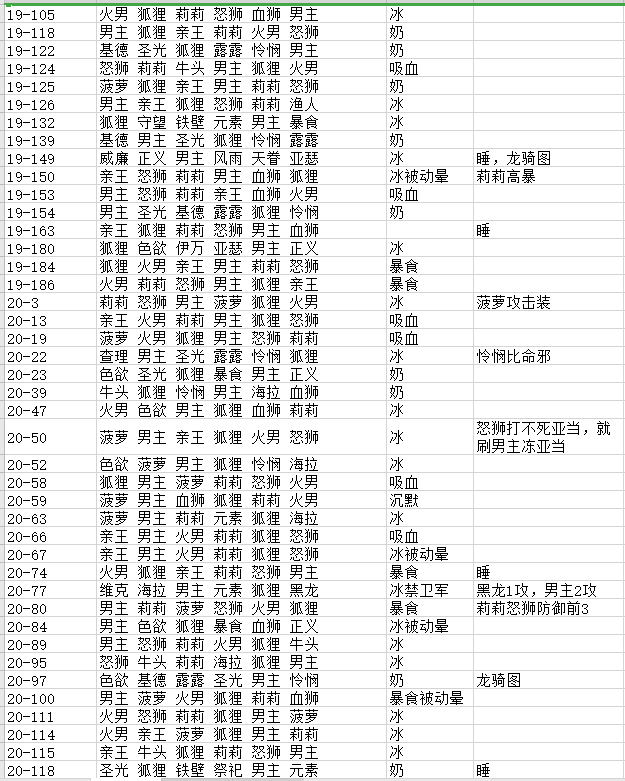 19-105 火男 狐狸 莉莉 怒狮 血狮 男主 冰
19-118 男主 狐狸 亲王 莉莉 火男 怒狮 奶
19-122 基德 圣光 狐狸 露露 怜悯 男主 奶
19-124 怒狮 莉莉 牛头 男主 狐狸 火男 吸血
19-125 菠萝 狐狸 亲王 男主 莉莉 怒狮 奶
19-126 男主 亲王 狐狸 怒狮 莉莉 渔人 冰
19-132 狐狸 守望 铁壁 元素 男主 暴食 冰
19-139 基德 男主 圣光 狐狸 怜悯 露露 奶
19-149 威廉 正义 男主 风雨 天眷 亚瑟 冰 睡，龙骑图
19-150 亲王 怒狮 莉莉 男主 血狮 狐狸 冰被动晕 莉莉高暴
19-153 男主 怒狮 莉莉 亲王 血狮 火男 吸血
19-154 男主 圣光 基德 露露 狐狸 怜悯 奶
19-163 亲王 狐狸 莉莉 怒狮 男主 血狮 睡
19-180 狐狸 色欲 伊万 亚瑟 男主 正义 冰
19-184 狐狸 火男 亲王 男主 莉莉 怒狮 暴食
19-186 火男 莉莉 怒狮 男主 狐狸 亲王 暴食
20-3 莉莉 怒狮 男主 菠萝 狐狸 火男 冰 菠萝攻击装
20-13 亲王 火男 莉莉 男主 狐狸 怒狮 吸血
20-19 菠萝 火男 狐狸 男主 怒狮 莉莉 吸血
20-22 查理 男主 圣光 露露 怜悯 狐狸 冰 怜悯比命邪
20-23 色欲 圣光 狐狸 暴食 男主 正义 奶
20-39 牛头 狐狸 怜悯 男主 海拉 血狮 奶
20-47 火男 色欲 男主 狐狸 血狮 莉莉 冰
20-50 菠萝 男主 亲王 狐狸 火男 怒狮 冰 怒狮打不死亚当，就
刷男主冻亚当
20-52 色欲 菠萝 男主 狐狸 怜悯 海拉 冰
20-58 狐狸 男主 菠萝 莉莉 怒狮 火男 吸血
20-59 菠萝 男主 血狮 狐狸 莉莉 火男 沉默
20-63 菠萝 男主 莉莉 元素 狐狸 海拉 冰
20-66 亲王 男主 火男 莉莉 狐狸 怒狮 吸血
20-67 亲王 男主 火男 莉莉 狐狸 怒狮 冰被动晕
20-74 火男 狐狸 亲王 莉莉 怒狮 男主 暴食 睡
20-77 维克 海拉 男主 元素 狐狸 黑龙 冰禁卫军 黑龙1攻，男主2攻
20-80 男主 莉莉 菠萝 怒狮 火男 狐狸 暴食 莉莉怒狮防御前3
20-84 男主 色欲 狐狸 暴食 血狮 正义 冰被动晕
20-89 男主 怒狮 莉莉 火男 狐狸 牛头 冰
20-95 怒狮 牛头 莉莉 海拉 狐狸 男主 冰
20-97 色欲 基德 露露 圣光 男主 怜悯 奶 龙骑图
20-100 男主 菠萝 火男 狐狸 莉莉 血狮 暴食被动晕
20-111 火男 怒狮 莉莉 狐狸 男主 菠萝 冰
20-114 火男 亲王 菠萝 狐狸 男主 莉莉 冰
20-115 亲王 牛头 狐狸 莉莉 怒狮 男主 冰
20-118 圣光 狐狸 铁壁 祭祀 男主 元素 奶 睡